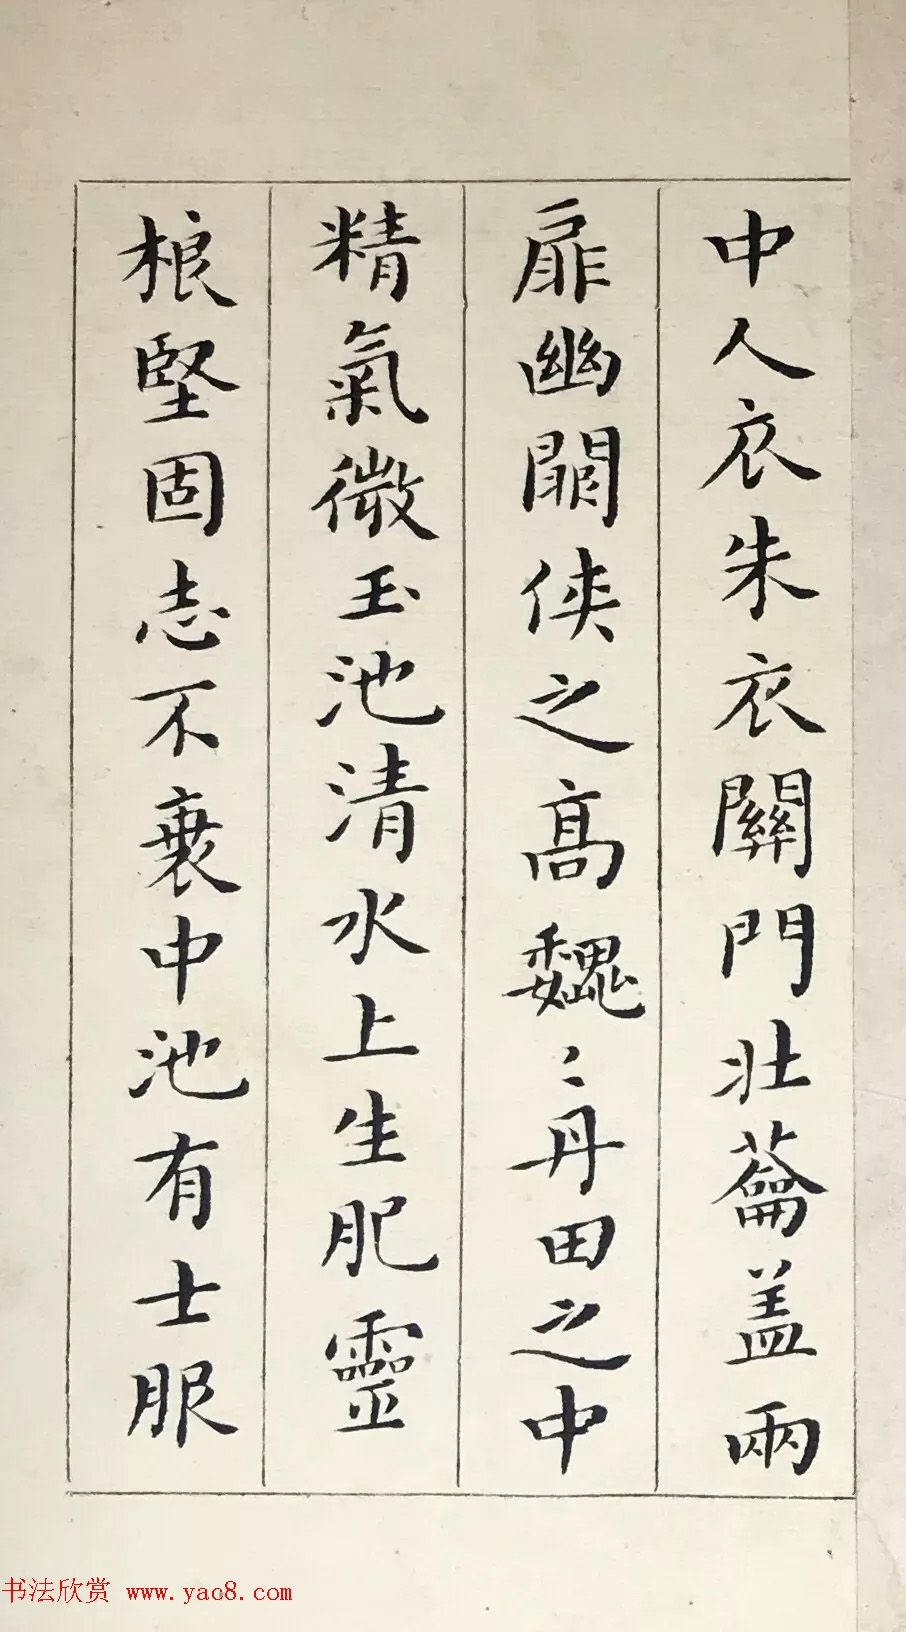 中人衣朱衣關門壯蘥盖兩
扉幽闗俠之高巍〻丹田之中
精氣微玉池清水上生肥靈
根堅固志不衰中池有士服
书法欣赏 www.yac8.com